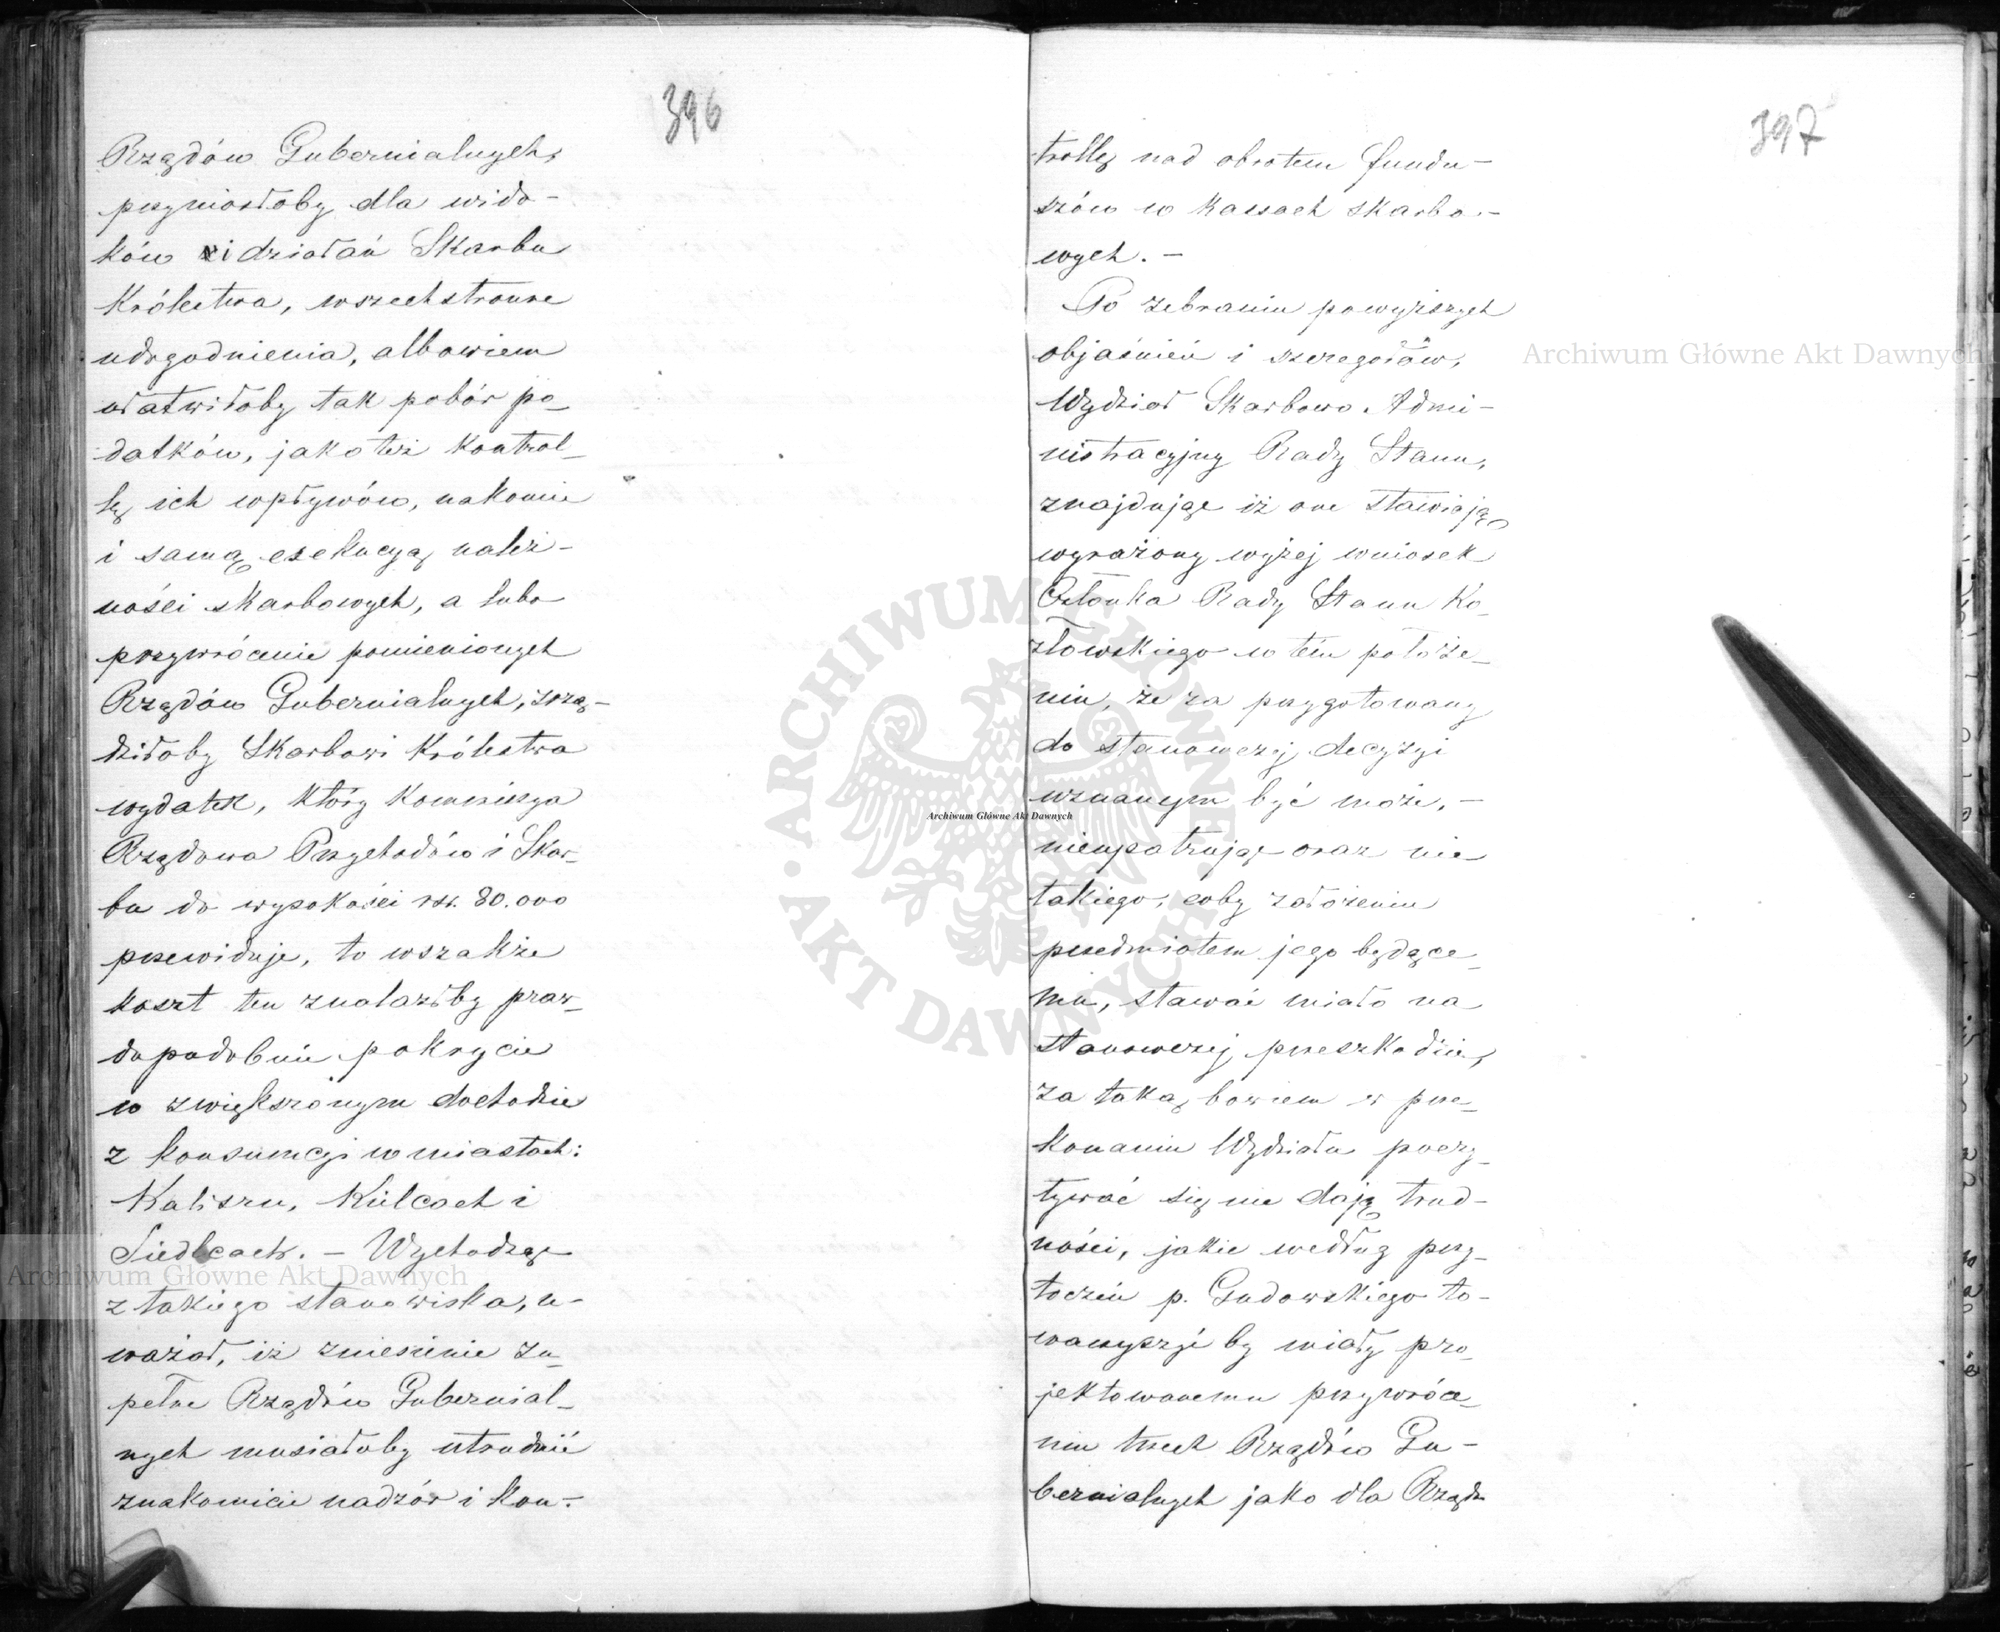 396
Rządów Gubernialnych,
przyniosłoby dla wido-
ków i działań Skarbu
Królestwa, wszechstronne
udogodnienia, albowiem
ułatwiłoby tak pobór po-
datków, jako też kontrol-
lę ich wpływów, nakonie
i samą exekucyą należ-
ności skarbowych, a lubo
przywrócenie pomienionych
Rządów Gubernialnych, zrzą-
dziłoby Skarbowi Królestwa
wydatek, który Kommissya
Rządowa Przychodów i Skar-
bu do wysokości rsr. 80.000
przewiduje, to wszakże
koszt ten znalazłby praw-
dopodobnie pokrycie
w zwiększonym dochodzie
z konsumcji w miastach:
Kaliszu, Kielcach i
Siedlcach. – Wychodząc
z takiego stanowiska, u-
ważał, iż zniesienie zu-
pełne Rządów Gubernial-
nych musiałoby utrudnić
znakomicie nadzór i kon-
397
trollę nad obrotem fundu-
szów w kassach skarbo-
wych. –
Po zebraniu powyższych
objaśnień i szczegółów,
Wydział Skarbowo Admi-
nistracyjny Rady Stanu,
znajdując iż one stawiają
wyrażony wyżej wniosek
Członka Rady Stanu Ko-
złowskiego w tém położe-
niu, że za przygotowany
do stanowczej decyzyi
uznanym być może, –
nieupatrując oraz nic
takiego, coby założeniu
przedmiotem jego będące-
mu, stawać miało na
stanowczej przeszkodzie,
za taką bowiem w prze-
konaniu Wydziału poczy-
tywać się nie dają trud-
ności, jakie według przy-
toczeń p. Gudowskiego to-
warzyszyć by miały pro-
jektowanemu przywróce-
niu trzech Rządów Gu-
bernialnych jako dla Rządu
Archiwum Główne Akt Dawnych
Archiwum Główne Akt Dawnych
Archiwum Główne Akt Dawnych
· ARCHIWUM GŁÓWNE · AKT DAWNYCH